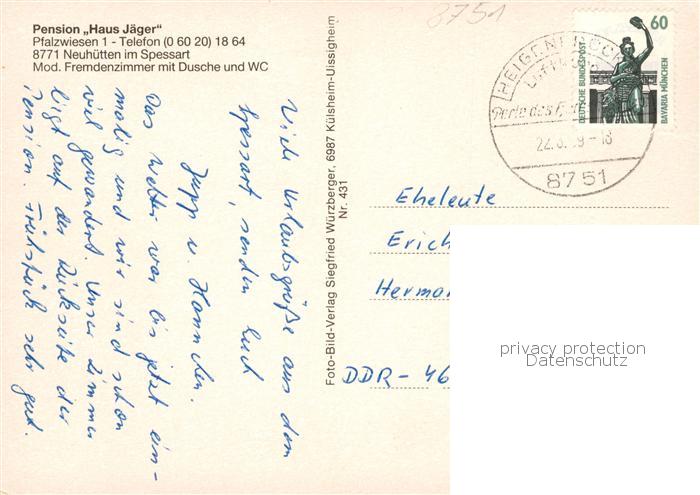 Pension „Haus Jäger"
Pfalzwiesen 1 - Telefon (0 60 20) 18 64
8771 Neuhütten im Spessart
Mod. Fremdenzimmer mit Dusche und WC
8751
60
DEUTSCHE BUNDESPOST
BAVARIA MÜNCHEN
HEIGENBRÜCKEN
Perle des
22.8. 9-18
8751
Viele Urlaubsgrüße aus dem
Spessart, senden Euch
Jupp u. Hannchen.
Das Wetter war bis jetzt ein-
malig und wir sind schon
viel gewandert. Unser Zimmer
liegt auf der Rückseite der
Pension. Frühstück sehr gut.
Foto-Bild-Verlag Siegfried Würzberger, 6987 Külsheim-Uissigheim
Nr. 431
Eheleute
Erich
Herma
DDR - 46
privacy protection
Datenschutz